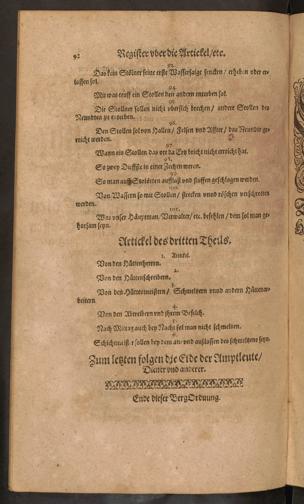 92 Register vber die Artickel/etc.
93.
Das kein Stöllner seine erste Wasserseige sencken/ erheben oder
fassen sol.
94.
Mit was ein Stollen den andern enterben sol.
95.
Die Stöllner sollen nicht vbersich brechen/ andere Stollen des
Neundten zu enterben.
96.
Den Stollen sol von Halten/ Felsen vnd Affter/ das Neundte ge-
reicht werden.
97.
Wann ein Stollen das ort da Ertz bricht nicht erreicht hat.
98.
So zwey in einer Zechen weren.
99.
So man auff Stolörtern aufflest vnd stuffen geschlagen werden.
100.
Von Wassern so mit Stollen/ strecken vnnd röschen verschroten
werden.
101.
Was vnser Häuptman/ Verwalter/ etc. befehlen/ dem sol man ge-
horsam seyn.
Artickel des dritten Theils.
1. Artickel.
Von den Hüttenherren.
2.
Von den Hüttenschreibern.
3.
Von den Hüttemeistern/ Schmeltzern vnnd andern Hüttenar-
beitern
4.
Von den Abtreibern vnd ihrem Befelch.
5.
Nach Mittag auch bey Nacht sol man nicht schmeltzen.
6.
Schichtmeister sollen bey dem an- vnd auslassen des schmeltzens seyn.
Zum letzten folgen die Eide der Amptleute/
Diener vnd anderer.
Ende dieser BergOrdnung.